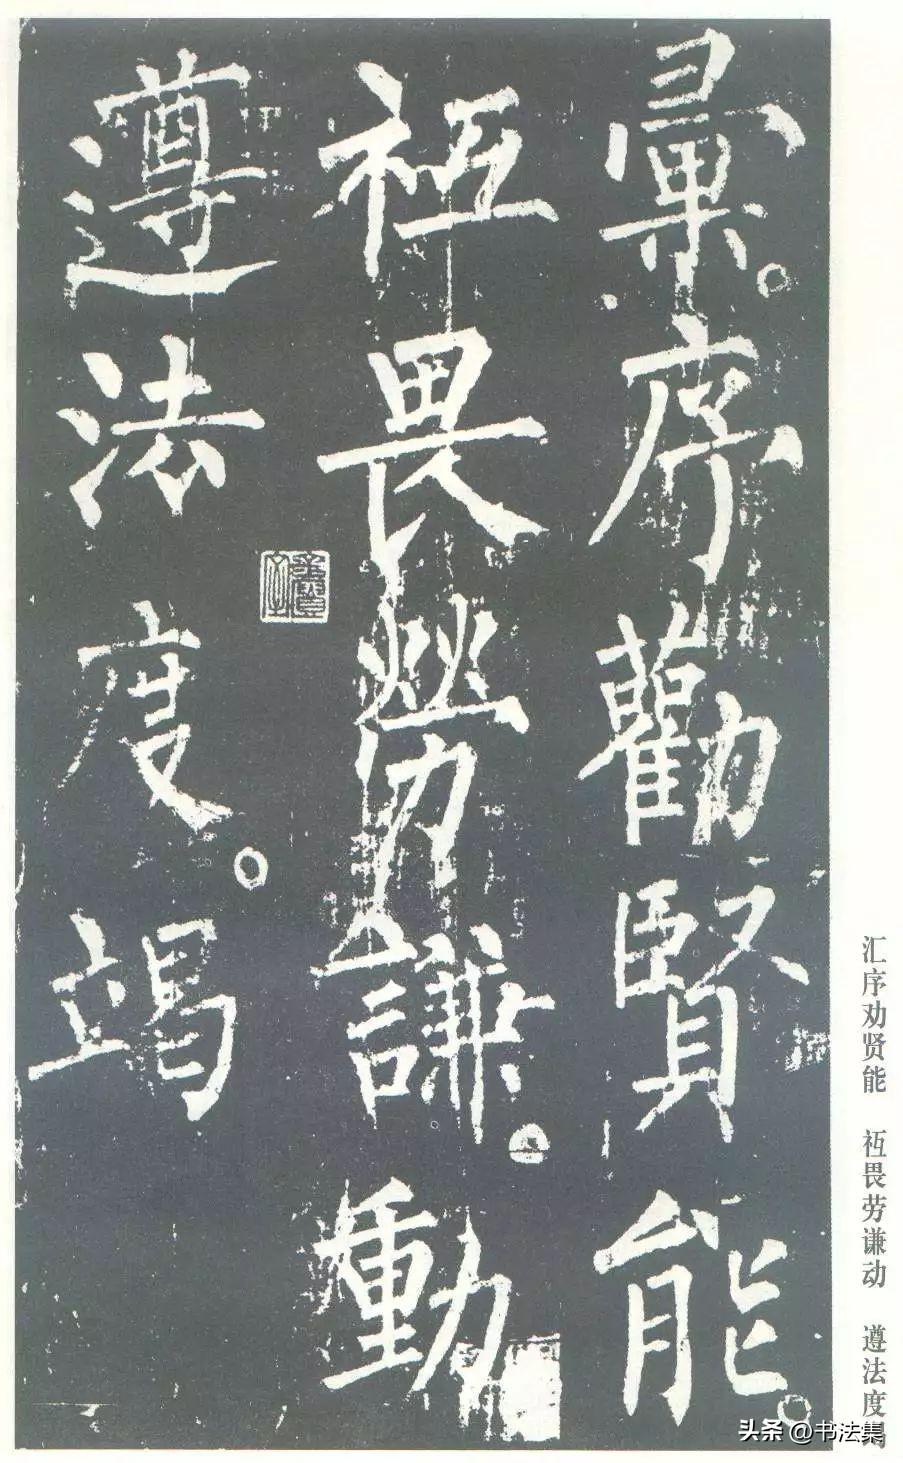 彙序勸賢能
袛畏勞謙動
遵法度竭
汇序劝贤能　袛畏劳谦动　遵法度竭
头条 @书法集